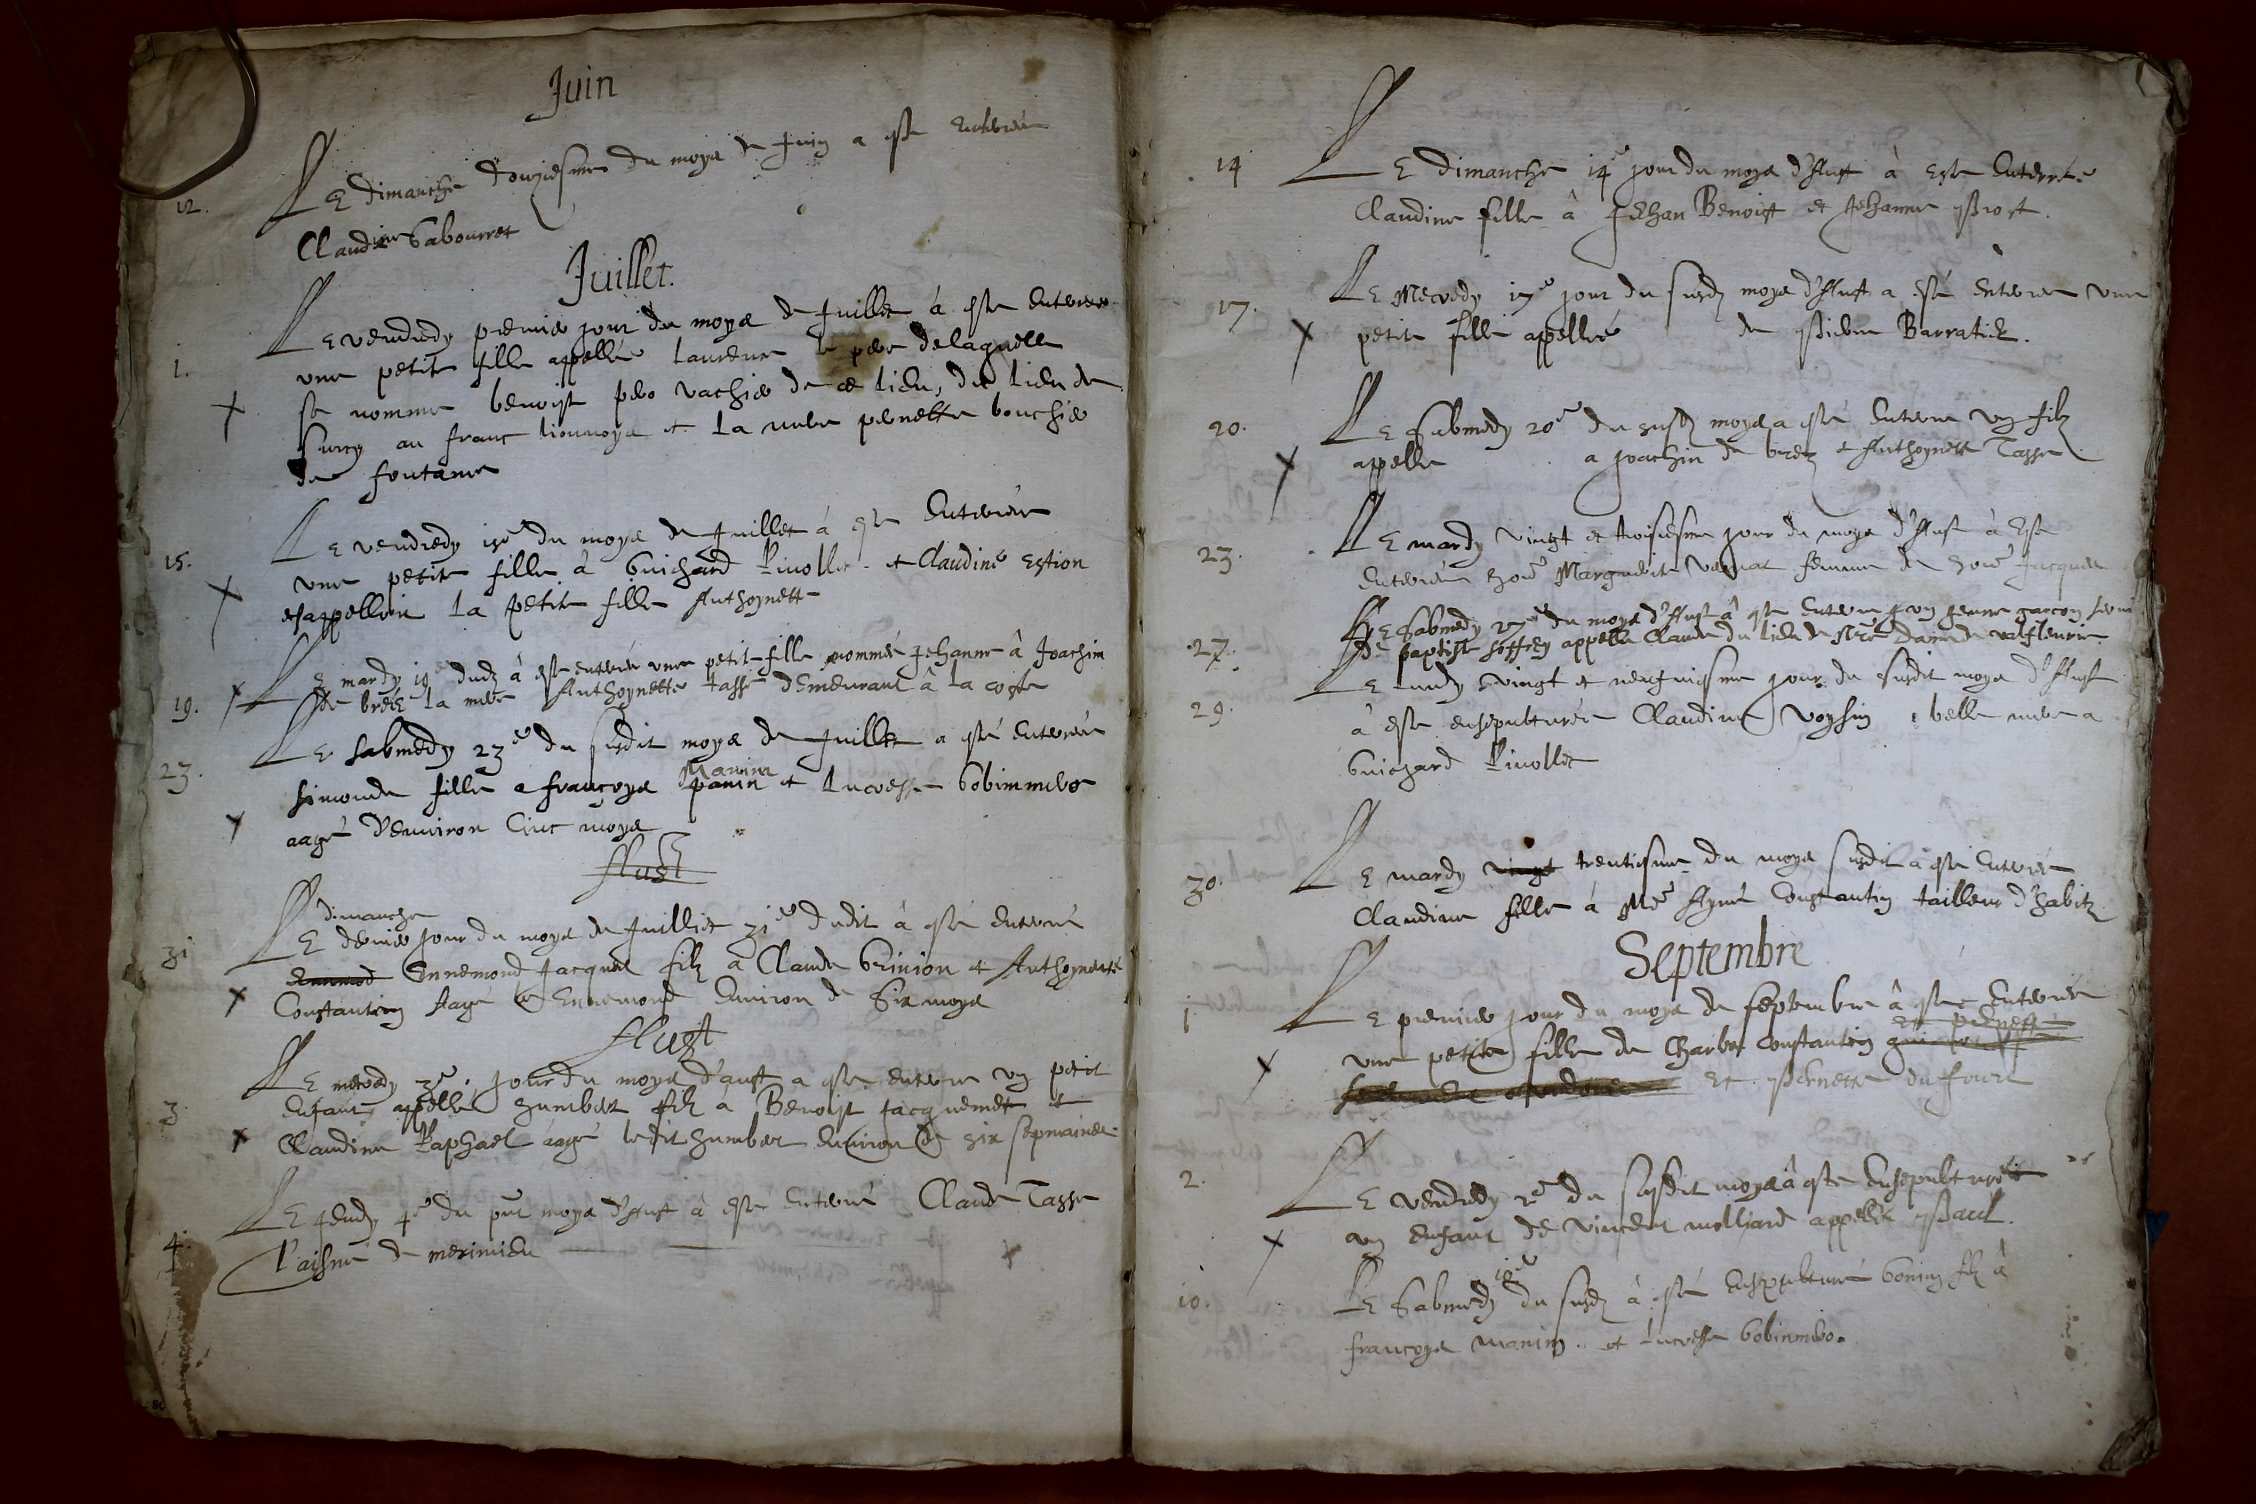 Juin
12.
LE dimanche douziesme du moys de Juin a este enterrée
Claudine Gabourret
Juillet.
1.
LE vendredy premier jour du moys de Juillet à este enterree
une petite fille appellée Laurence le pere de laquelle
se nomme benoist pero vachier de ce lieu, du lieu de
Surcy au franc lionnoys et la mere pernette bouchie
de fontanes
15.
LE vendredy 15e du moys de Juillet à este enterrée
une petite fille à Guichard Rivollet et Claudine Estion
et s'appelloit la petite fille Anthoynette
19.
LE mardy 19e dudz à esté enterrée une petite fille nommée Jehanne à Joachin
de breez la mere Anthoynette tasse demeurant à la coste
23.
LE sabmedy 23e du susdit moys de Juillet a esté enterrée
Manin
simonde fille a françoys panin et Lucresse Gobinmere
aagé d'environ cinc moys
Aust
31
dimanche
LE dernier jour du moys de Juilliet 31e dudit à esté enterré
Ennemod Ennemond Jacques filz à Claude Grinion et Anthoynette
Constantin Aagé le Ennemond environ de Six moys
Aust
3
LE mecredy 3e jour du moys d'aust a este enterre un petit
enfant appellé humbert filz à Benoist Jacquemet et
Claudine Raphael aagé ledit humbert environ de six sepmaines.
4.
LE jeudy 4e du pnt moys d'Aust à esté enterré Claude Tasse
l'aisné de merimieu
14
LE dimanche 14e jour du moys d'Aust à este Enterrée
Claudine fille à Jehan Benoist et Jehanne Brost.
17.
LE Mecredy 17e jour du susdz moys d'Aust a esté enterree une
petite fille appellée de Pierre Barratier.
20.
LE Sabmedy 20e du susdz moys a esté enterre un filz
appelle a Joachin de brez et Anthoynette Tasse
23.
LE mardy vingt et troisiesme jour du moys d'Aust à Este
enterrée hone Marguerite Vernat femme de hone Jacques
27.
LE Sabmedy 27e du moys d'Aust à este enterre un jeune garcon
de baptiste soffrey appelle Claude du lieu de Nre Dame de valfleurie
29.
LE lundy vingt et neufviesme jour du susdit moys d'Aust
à este ensepulturée Claudine Voysin belle mere a
Guichard Rivollet
30.
LE mardy vingt trentiesme du moys susdit à este Enterrée
Claudine fille à Me Aymé Constantin tailleur d'habitz
Septembre
1
LE premier jour du moys de septembre à este Enterrée
et pernette
une petite fille de Charles Constantin
et Pernette du four
2.
LE vendredy 2e du susdit moys à este Ensepulturée
un enfant de Vincent molliard appellé Paul.
10.
10e
LE Sabmedy du susdz à esté Ensepulturé Gonin filz à
françoys manin et Lucresse Gobinmere.